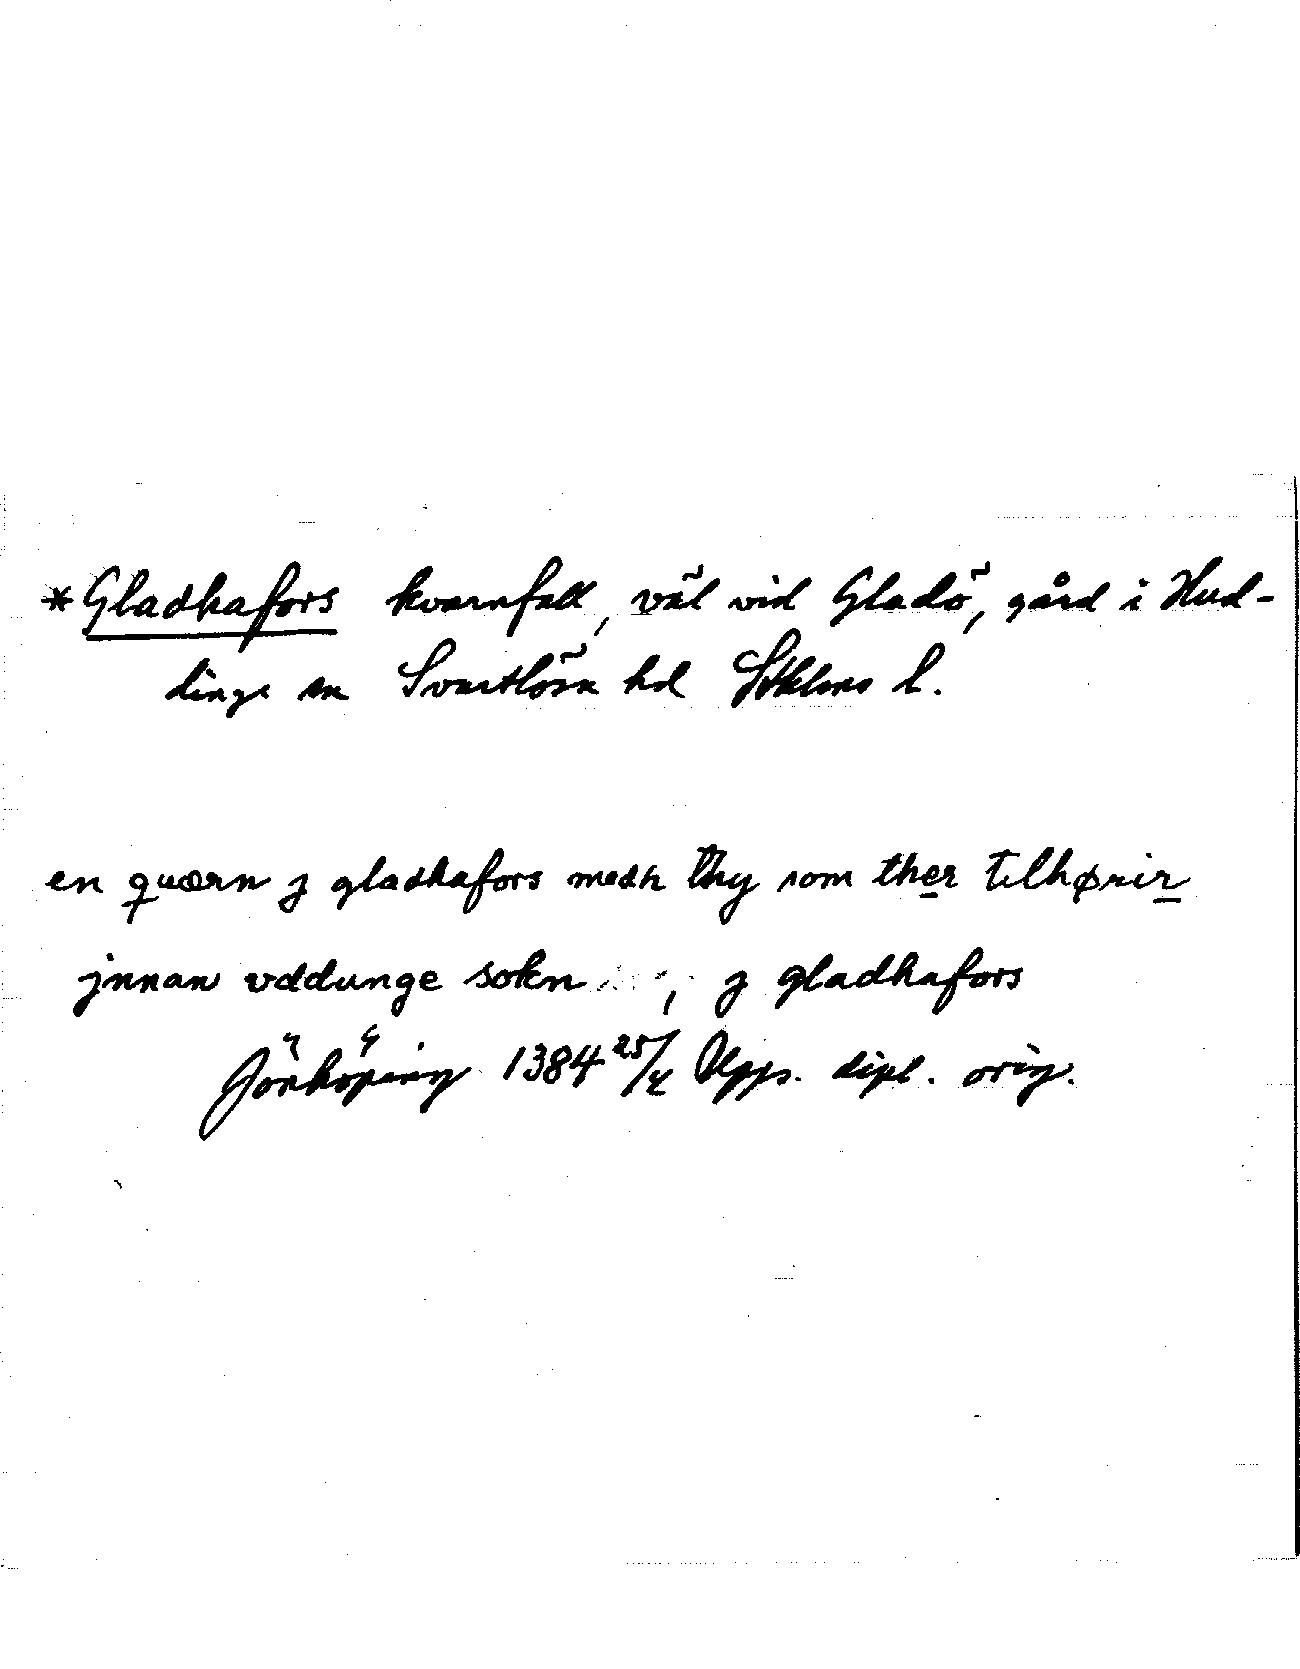 *Gladhafors kvarnfall, väl vid Gladö, gård i Hud-
dinge sn Svartlösa hd Sthlms l.
en quærn j gladhafors mædh thy som ther tilhørir
jnnan vddunge sokn , j gladhafors
Jönköping 1384 25/4 Upps. dipl. orig.